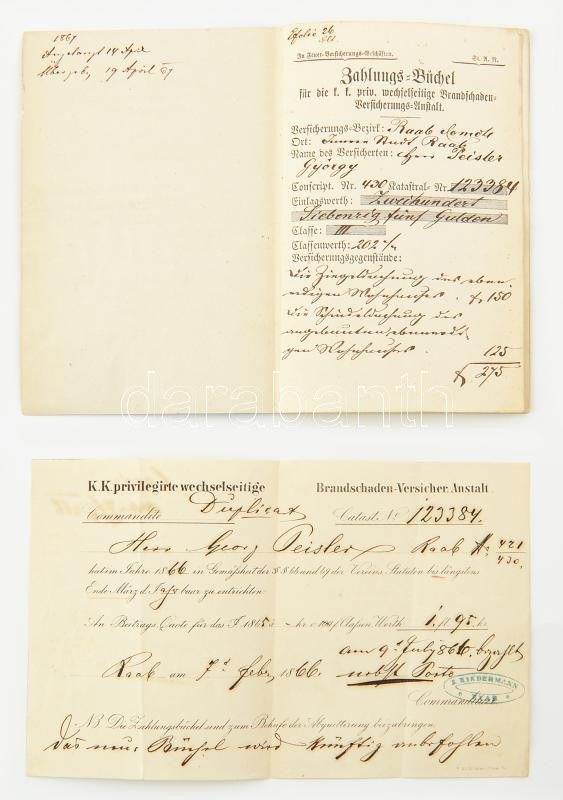 1867
Angelangt 14 April
Übergeb. 19 April 67
Efolio 26
In Feuer-Versicherungs-Geschäften.
St. A. N.
Zahlungs-Büchel
für die k. k. priv. wechselseitige Brandschaden-
Versicherungs-Anstalt.
Versicherungs-Bezirk: Raab Comob
Ort: Innere Stadt Raab
Name des Versicherten: Herr Peisler
György
Conscript. Nr. 430 Katastral-Nr. 123384
Einlagswerth: Zweihundert
Siebenzig fünf Gulden
Classe: III
Classenwerth: 202
Versicherungsgegenstände:
die Ziegeldachung des eben-
erdigen Wohnhauses. f 150
die Schindeldachung des
angebauten ebenerdi-
gen Wohnhauses. 125
f 275
darabanth
K.K. privilegirte wechselseitige Brandschaden-Versicher. Anstalt
Commandite Duplicat Catast. No 123384.
Herr Georg Peisler Raab No 421
430.
hat im Jahre 1866 in Gemässheit der §§ 66 und 49 der Vereins Statuten bis längstens
Ende März d. Jahrs baar zu entrichten:
An Beitrags Quote für das J. 1865 à kr. 100 f Classen Werth 1 fl 95 kr
am 9t July 866 bezahlt
Raab am 7t Febr 1866. nebst Porto
J. KINDERMANN
RAAB
Commandite
NB Die Zahlungsbüchel sind zum Behufe der Abquittirung beizubringen.
Das neue Büchel wird künftig anbefohlen